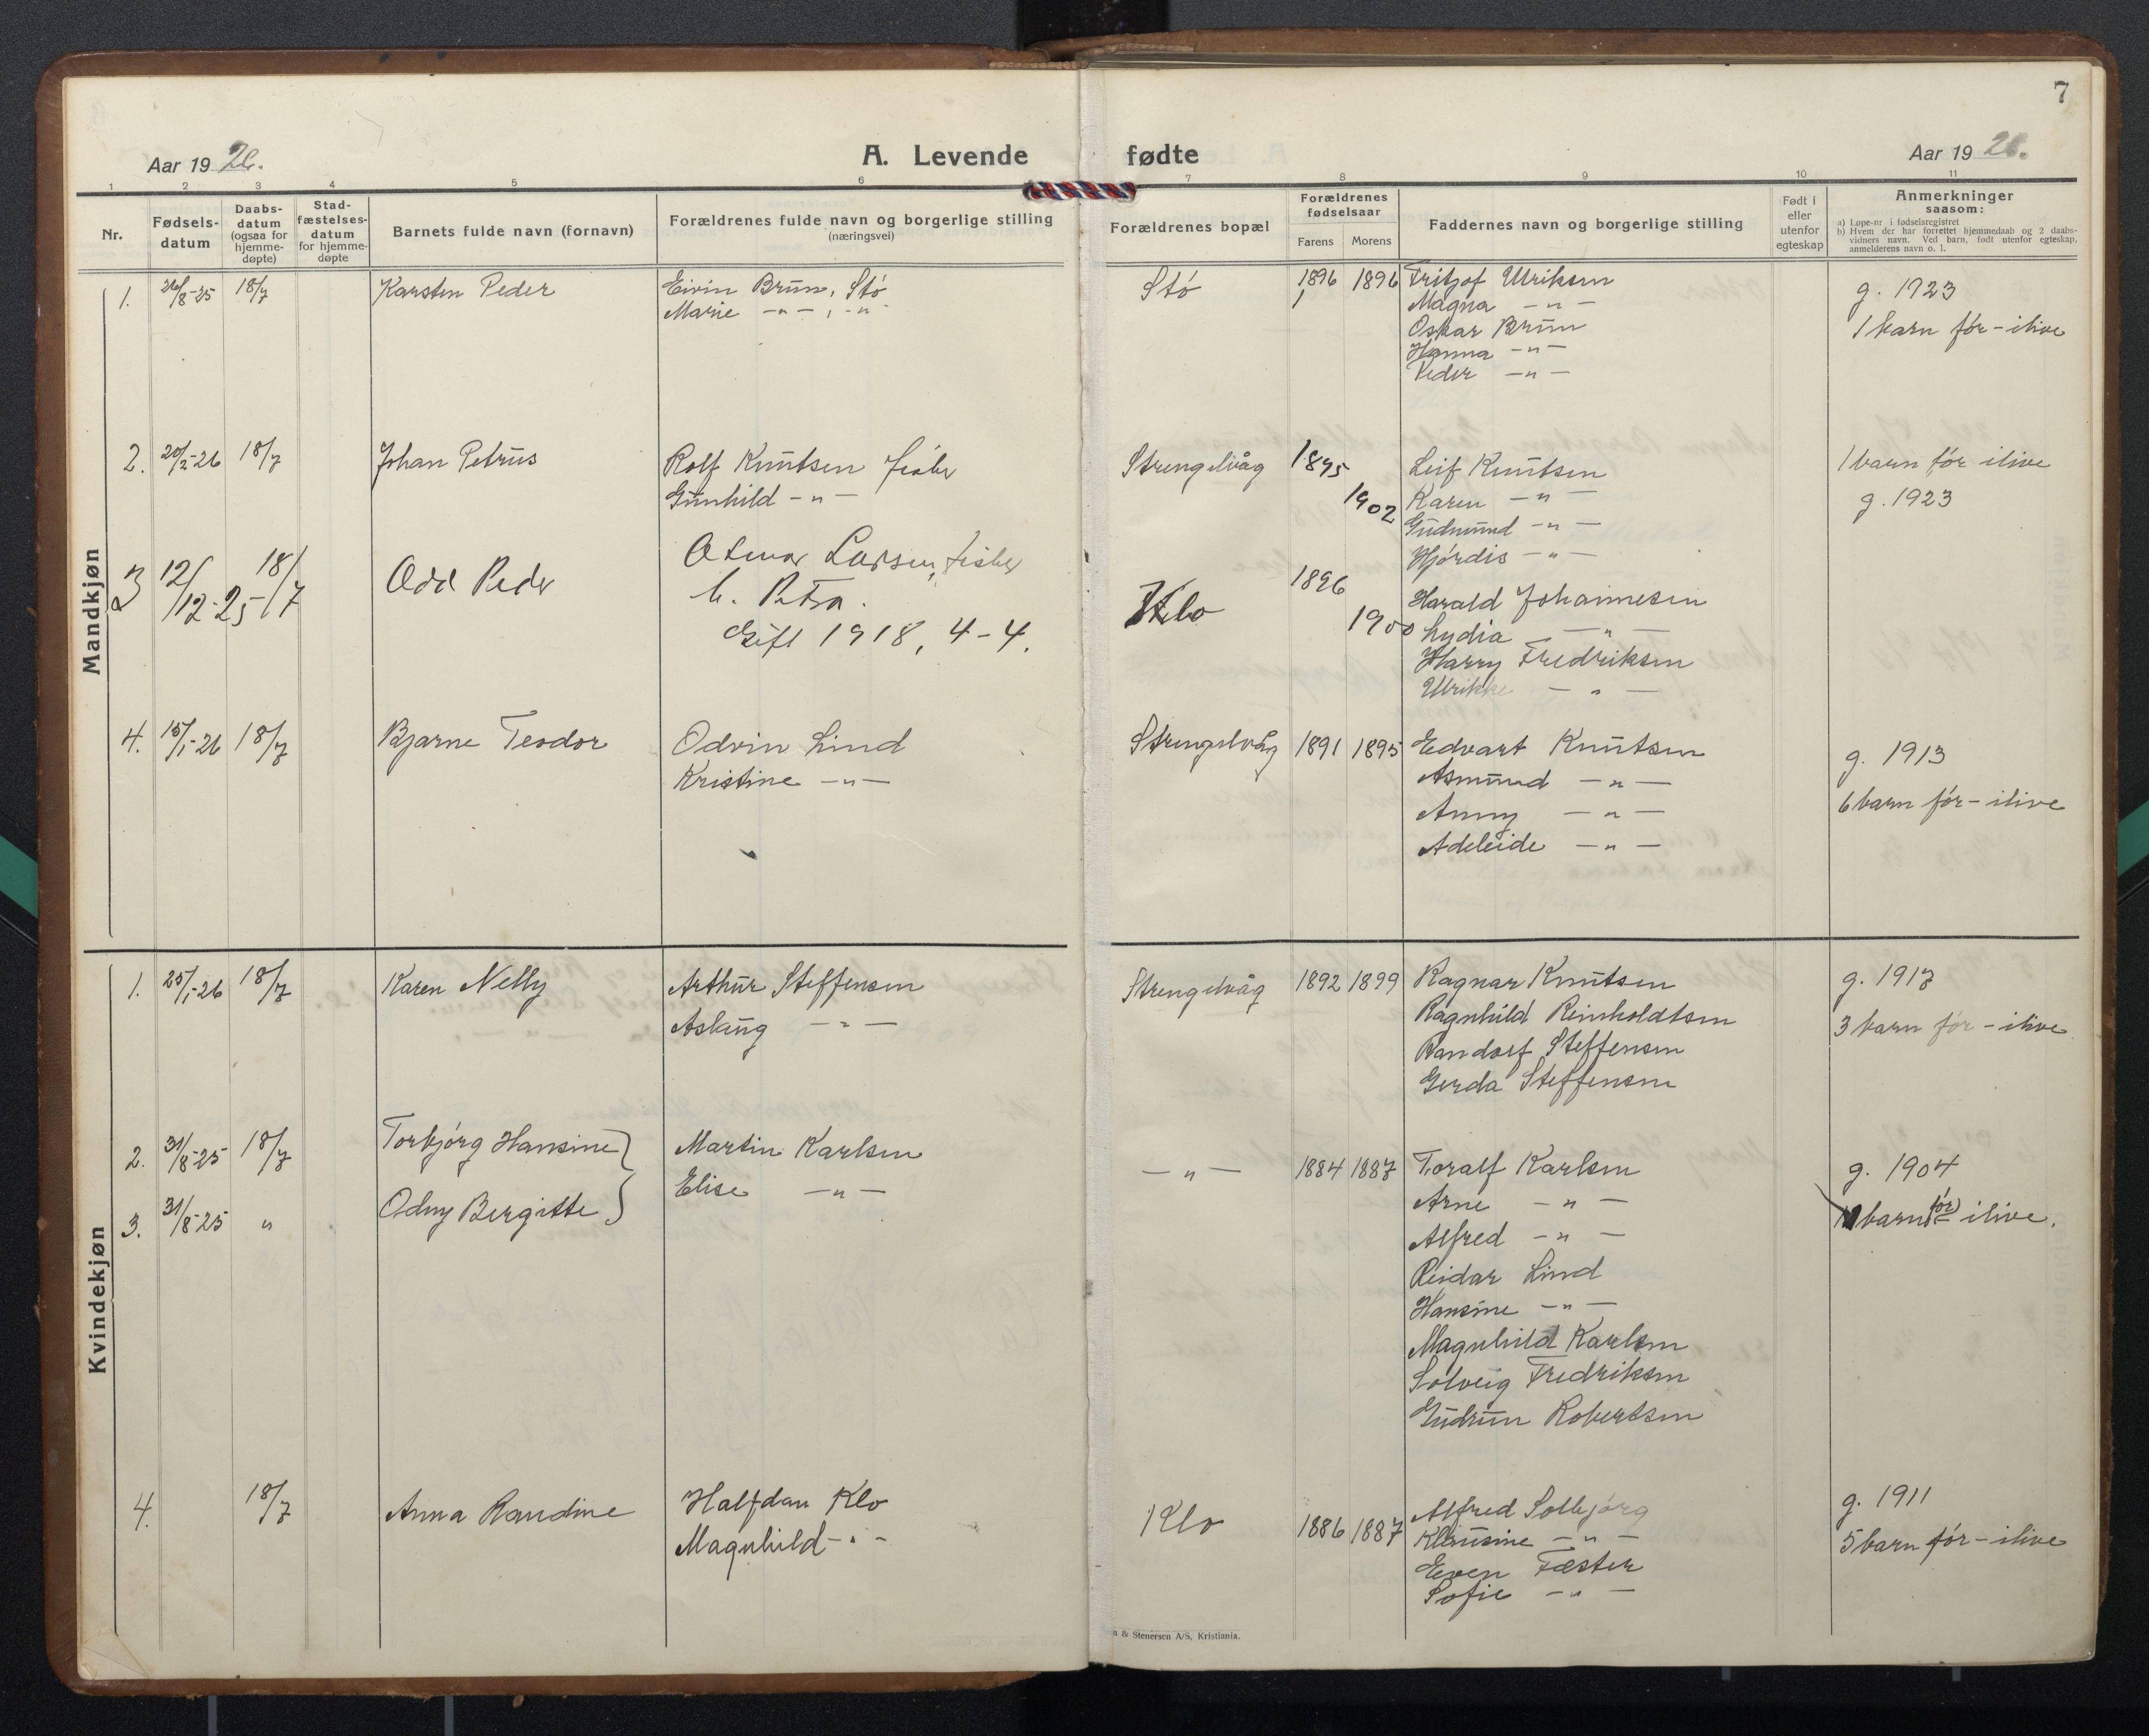 7
Aar 1926.
A. Levende fødte
Aar 1926.
1 2 3 4 5 6 7 8 9 10 11
Nr.
Fødsels-
datum
Daabs-
datum
(ogsaa for
hjemme-
døpte)
Stad-
fæstelses-
datum
for hjemme-
døpte
Barnets fulde navn (fornavn)
Forældrenes fulde navn og borgerlige stilling
(næringsvei)
Forældrenes bopæl
Forældrenes
fødselsaar
Farens Morens
Faddernes navn og borgerlige stilling
Født i
eller
utenfor
egteskap
Anmerkninger
saasom:
a) Løpe-nr i fødselsregistret
b) Hvem der har forrettet hjemmedaab og 2 daabs-
vidners navn. Ved barn, født utenfor egteskap,
anmelderens navn o. l.
Mandkjøn
1. 26/8-25 18/7 Karsten Peder Eivin Brun, Stø Stø 1896 1896 Fritjof Ulriksen g. 1923
Marie -"-, -"- Magna -"-
Oskar Brun 1 barn før - ilive
Hanna -"-
Peder -"-
2. 20/2-26 18/7 Johan Petrus Rolf Knutsen fisker Strengelvåg 1895 Leif Knutsen 1 barn før ilive
Gunhild -"- 1902 Karen -"- g. 1923
Gudmund -"-
Hjørdis -"-
3 12/12-25 18/7 Odd Peder Larsen, fisker Klo 1896 Harald Johannesen
h. Petra. 1900 Lydia -"-
Gift 1918, 4-4. Harry Fredriksen
Ulrikke -"-
4. 15/1-26 18/7 Bjarne Teodor Odvin Lind Strengelvåg 1891 1895 Edvart Knutsen g. 1913
Kristine -"- Asmund -"-
Anny -"- 6 barn før - ilive
Adeleide -"-
Kvindekjøn
1. 25/1-26 18/7 Karen Nelly Arthur Steffensen Strengelvåg 1892 1899 Ragnar Knutsen g. 1917
Aslaug -"- Ragnhild Reinholdtsen 3 barn før - ilive
Randolf Steffensen
Gerda Steffensen
2. 31/8-25 18/7 Torbjørg Hansine Martin Karlsen -"- 1884 1887 Toralf Karlsen g. 1904
Elise -"- Arne -"-
3. 31/8-25 " Odny Bergitte Alfred -"- barn før ilive.
Reidar Lind
Hansine -"-
Magnhild Karlsen
Solveig Fredriksen
Gudrun Robertsen
4. 18/7 Anna Randine Halfdan Klo Klo 1886 1887 Alfred Solbjørg g. 1911
Magnhild -"- Klausine -"- 5 barn før - ilive
Even Fæster
Sofie -"-
n & Stenersen A/S, Kristiania.